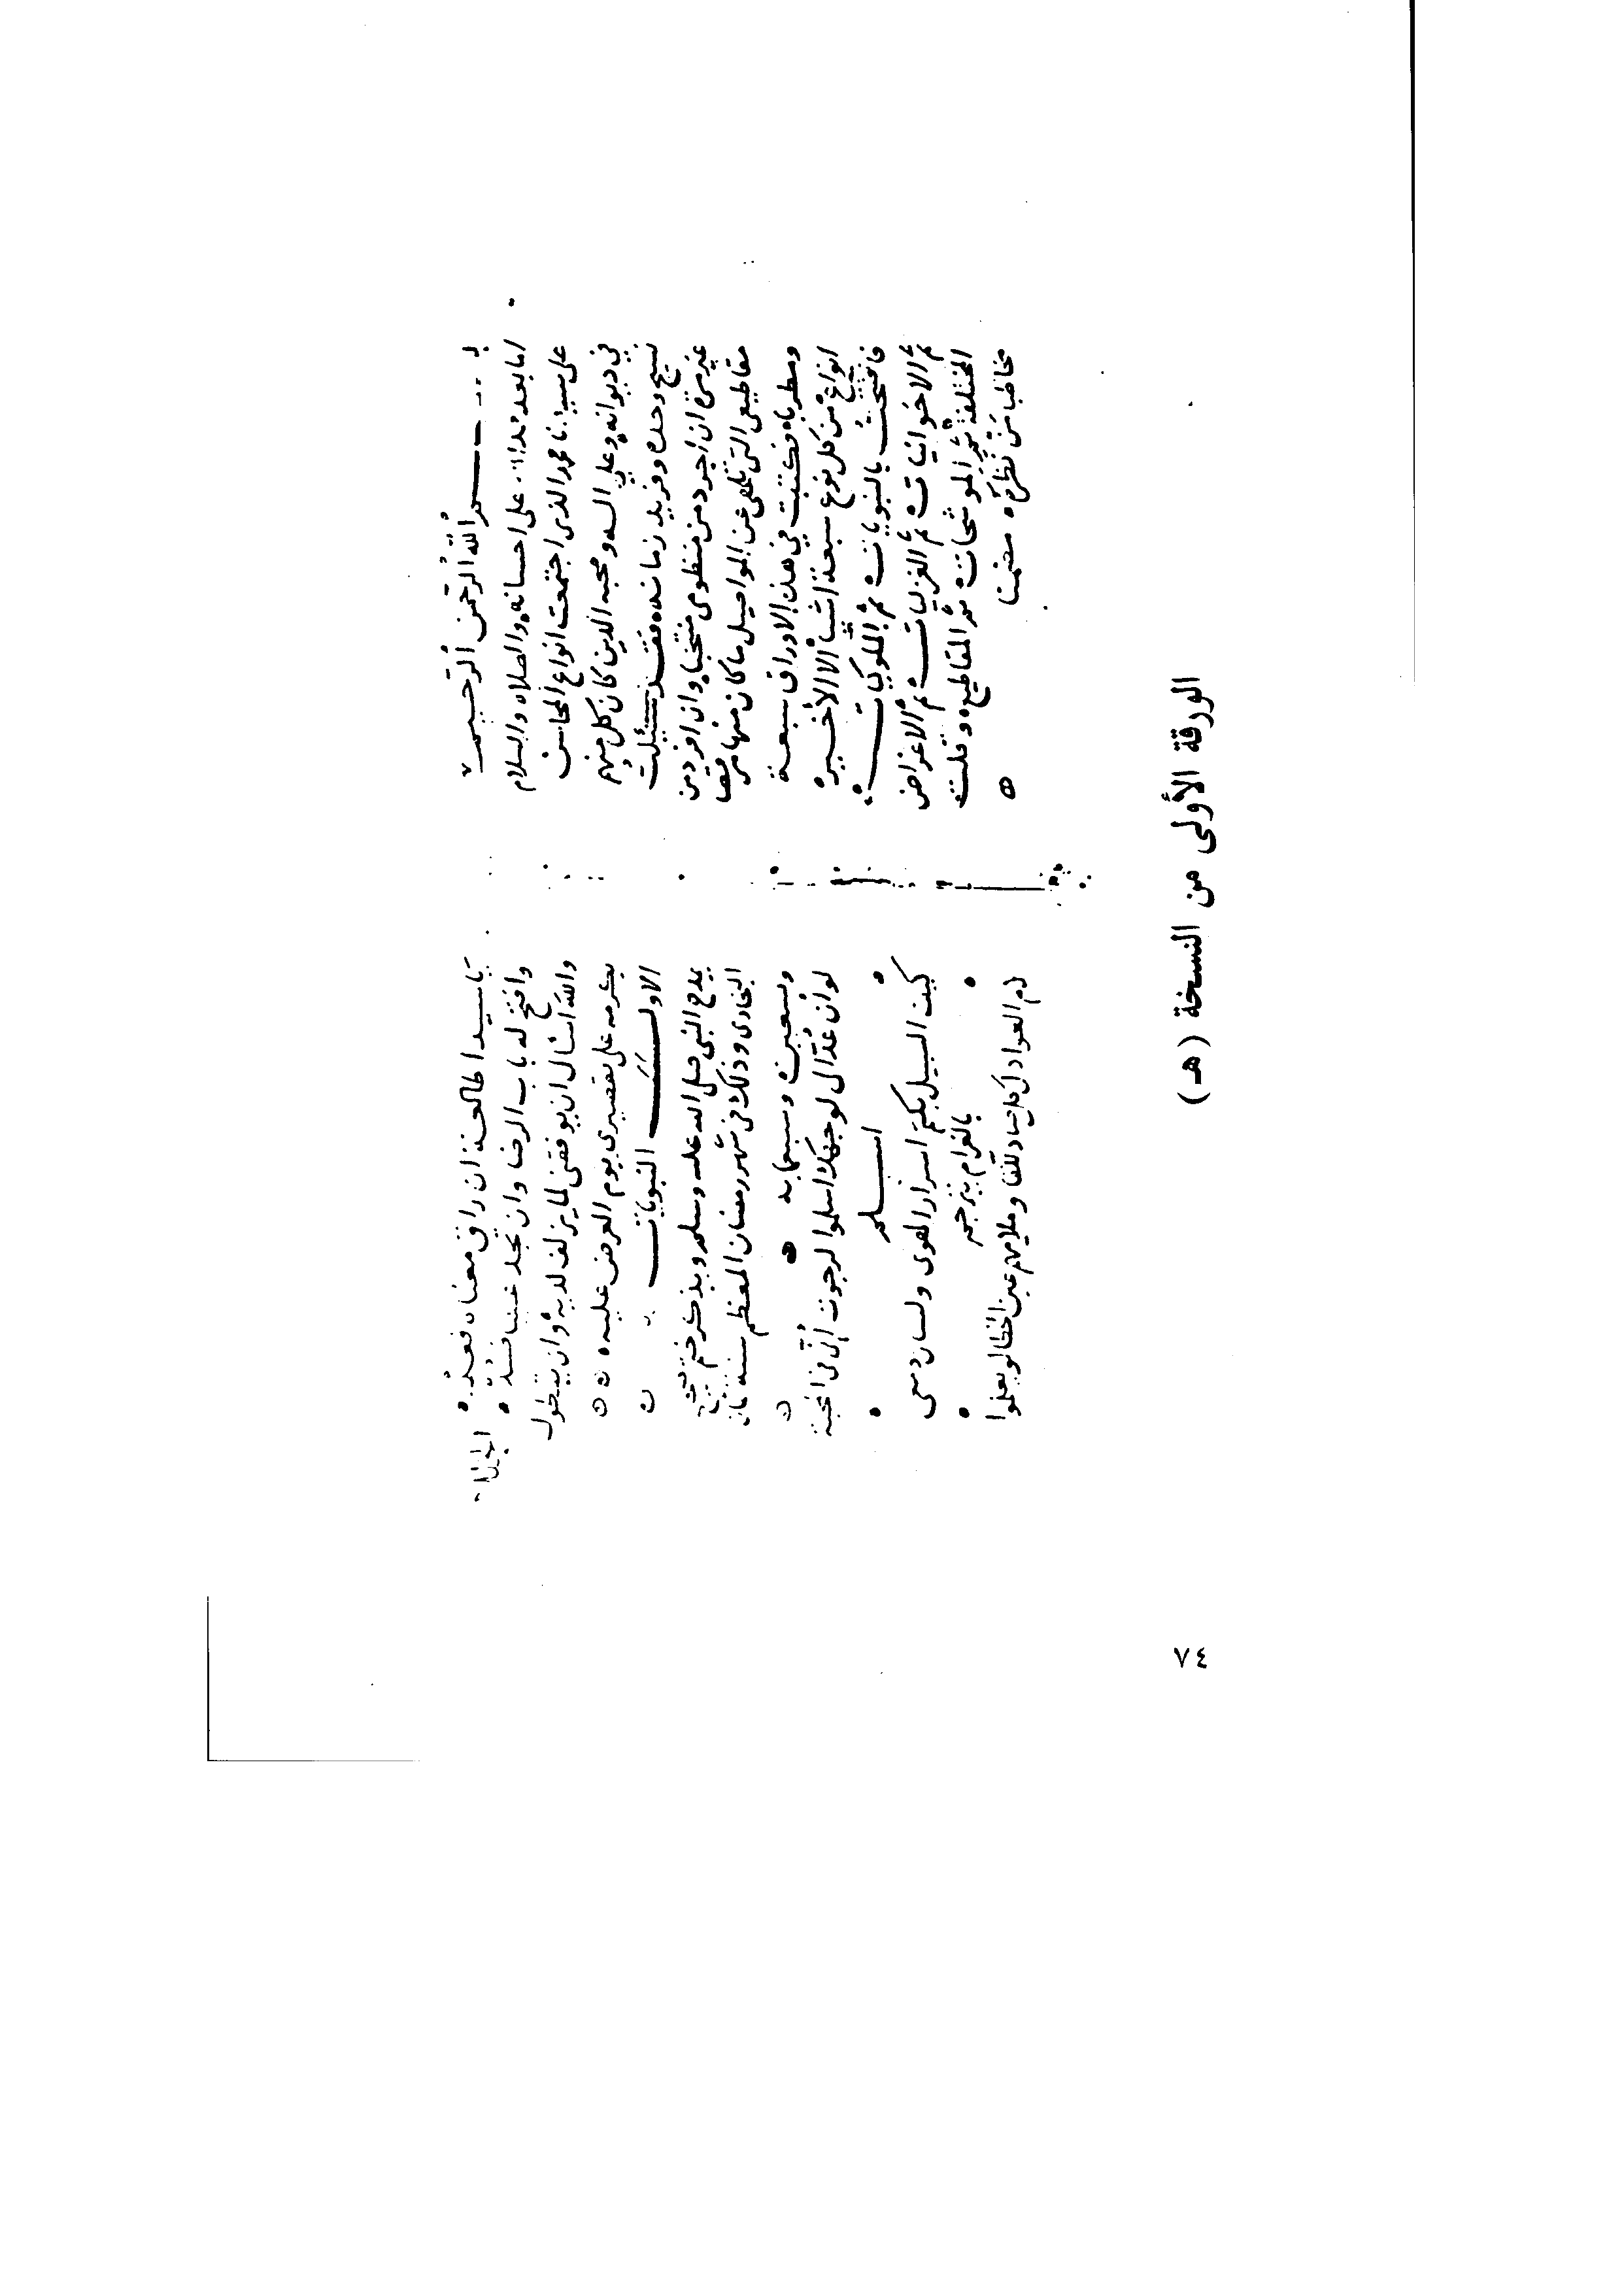 بسم الله الرحمن الرحيم
اما بعد حمد الله على احسانه والصلاه والسلام
على سيدنا محمد الذي اجتمعت انواع المحاسن
في ديوانه وعلى اله وصحبه الذين كان كل منهم
نسيج وحده وفريد زمانه فقد سئلت
غير مرة ان اجرد من منظومي منتخبا وان افرد من
مقاطيعي التي تلهي عن المواصيل ما كان منها مرقصا
ومطربا فكتبت في هذه الاوراق سبعة
انواع من كل نوع سبعة اشيأ الا الأخيره
فافتتحت بالنبويات ثم الملوكيات
ثم الاخوانيات ثم الغزليات ثم الاغراض
المختلفة ثم الموشحات ثم المقاطيع وقلت
مخاطبا من نظره مضمنا
ياسيدا طالعه ان راق معناه فعد
وافتح له باب الرضا وان تجد عيبا فسد
والله اسئال ان يوفقني لما يزلف لديه وان يتطول
بكرمه على تقصيري يوم العرض عليه
الاول النبويات
يمدح النبي صلى الله عليه وسلم ويذكر ختم
البخاري وذلك في شهر رمضان المعظم سنة ثمان
وتسعين وسبعمايه
لو ان عذالي لوجهك اسلموا لرجوت أني في المحبة
اسلم
كيف السبيل بكتم اسرار الهوى ولسان دمعي
بالغرام يترجم
لام العواذل كل صاد للقا وملامهم عين الخطا لو يعلموا
الورقة الأولى من النسخة (هـ)
٧٤